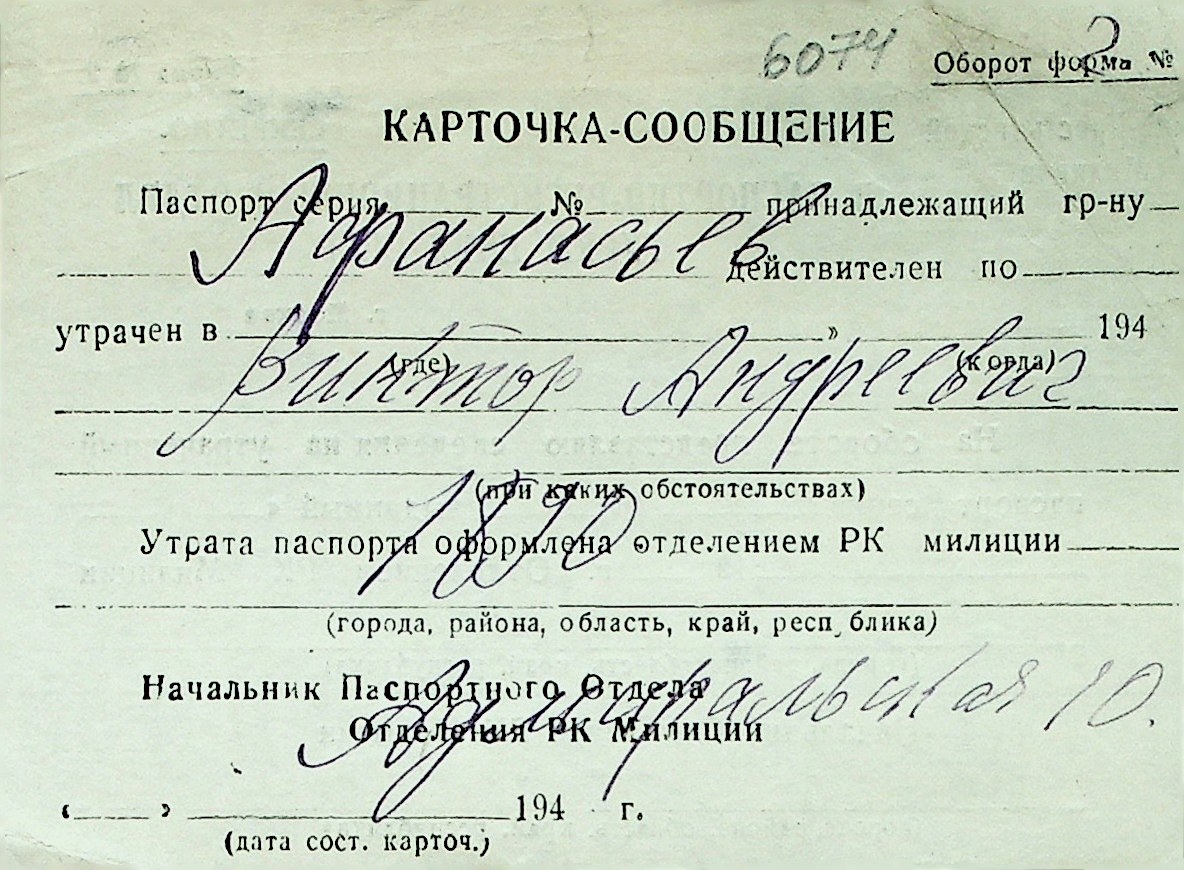 6074 Оборот форма № 2
КАРТОЧКА-СООБЩЕНИЕ
Паспорт серия № принадлежащий гр-ну
Афанасьев
действителен по
утрачен в » 194
(где) (когда)
Виктор Андреевич
(при каких обстоятельствах)
1890
Утрата паспорта оформлена отделением РК милиции
(города, района, область, край, респ блика)
Начальник Паспортного Отдела
Адмиральская 10.
Отделения РК Милиции
« » 194 г.
(дата сост. карточ.)